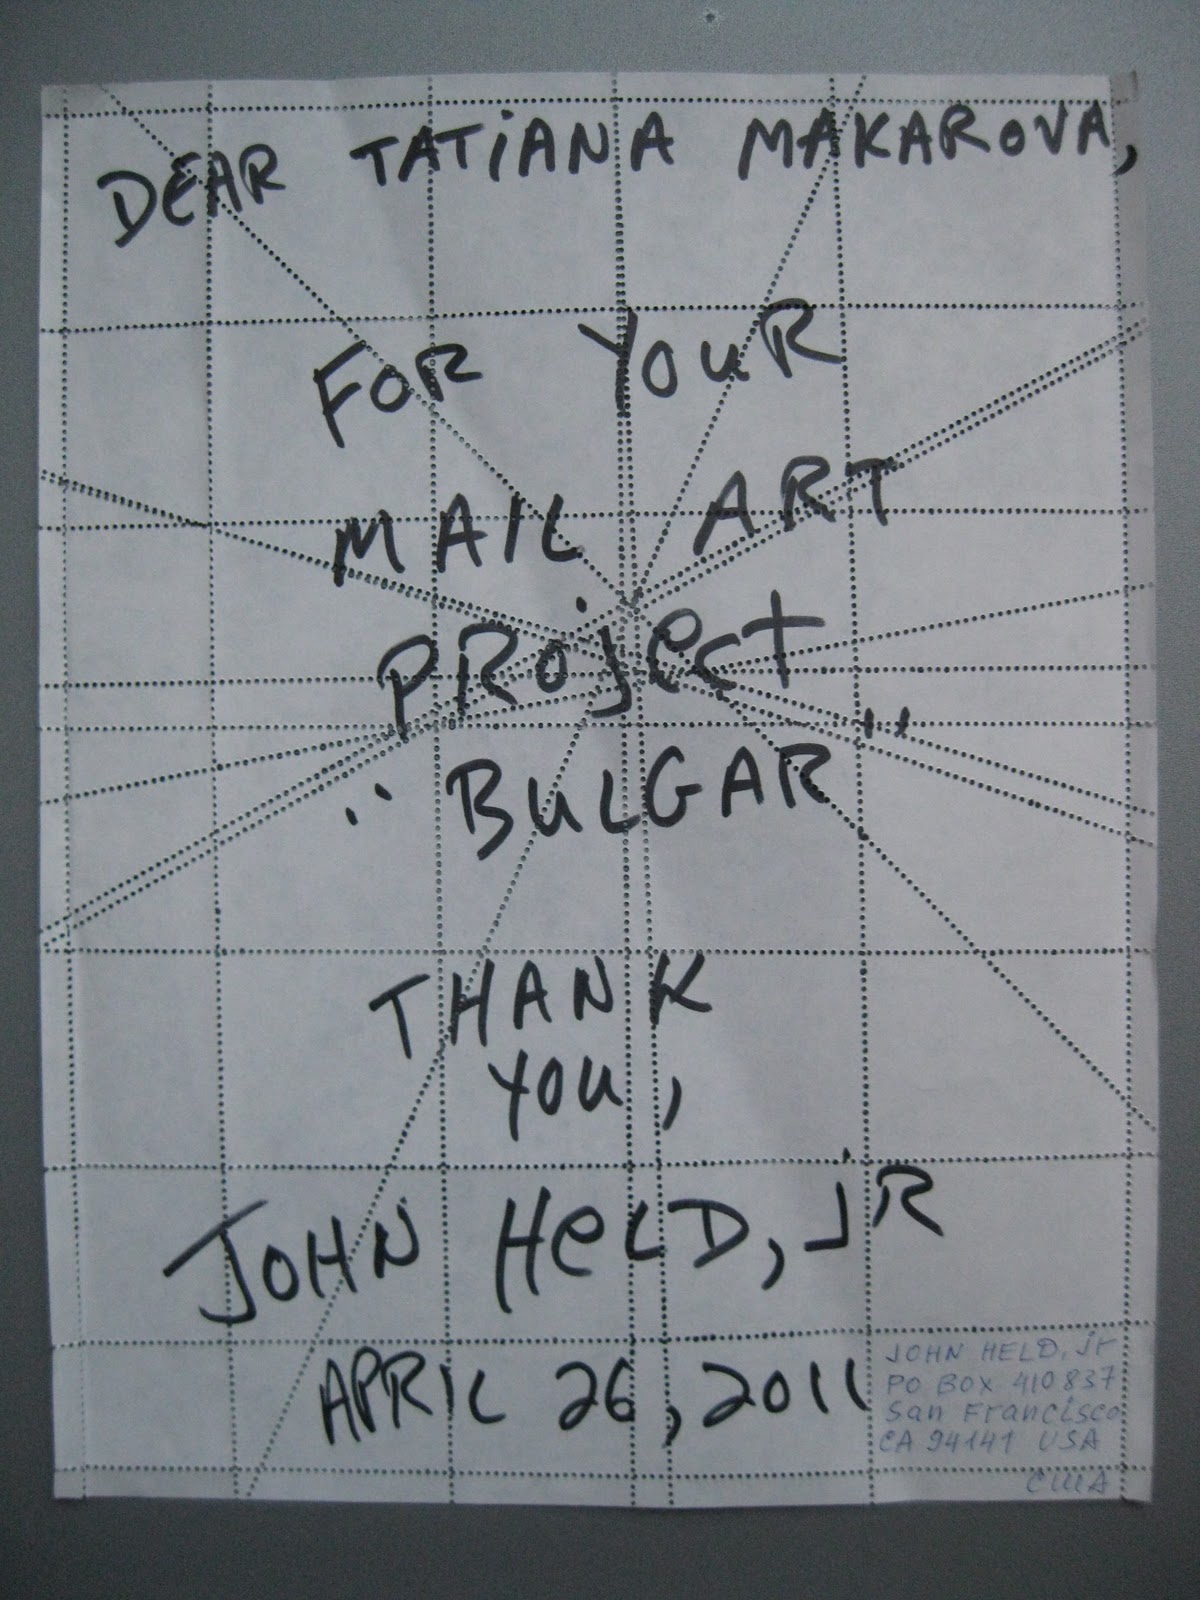 DEAR TATiANA MAKAROVA,
FOR YOUR
MAIL ART
PROject
"BULGAR"
THANK
YOU,
JOHN HeLD, jR
APRIL 26, 2011
JOHN HELD, jr
PO BOX 410837
San Francisco
CA 94141 USA
США